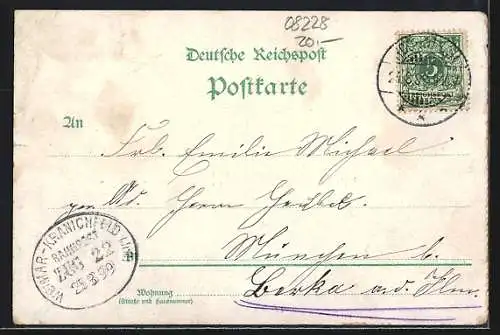 08228
20,-
Deutsche Reichspost
Postkarte
An
Frl. Emilie Michael
Herrn
München b.
Berka a. d. Ilm.
Wohnung
(Straße und Hausnummer)
WEIMAR-KRANICHFELD
BAHNPOST
ZUG 22
5